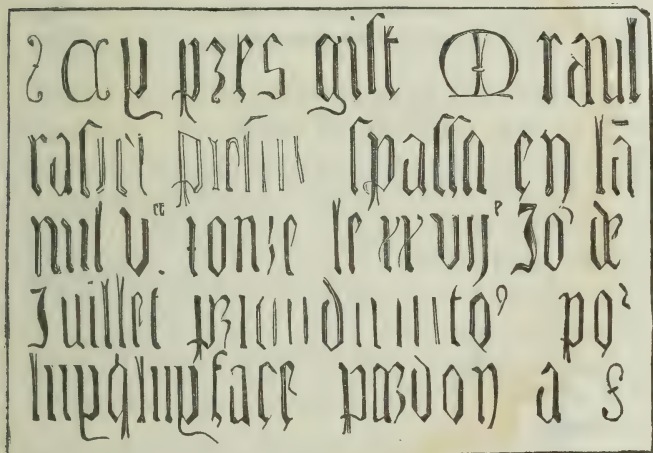 Icy pres gist M raul
spassa en lā
mil v.ᶜᶜ ionze le xxvijᵉ Jo de
Juillet poꝛ
luy q̇ luy face pardon a s